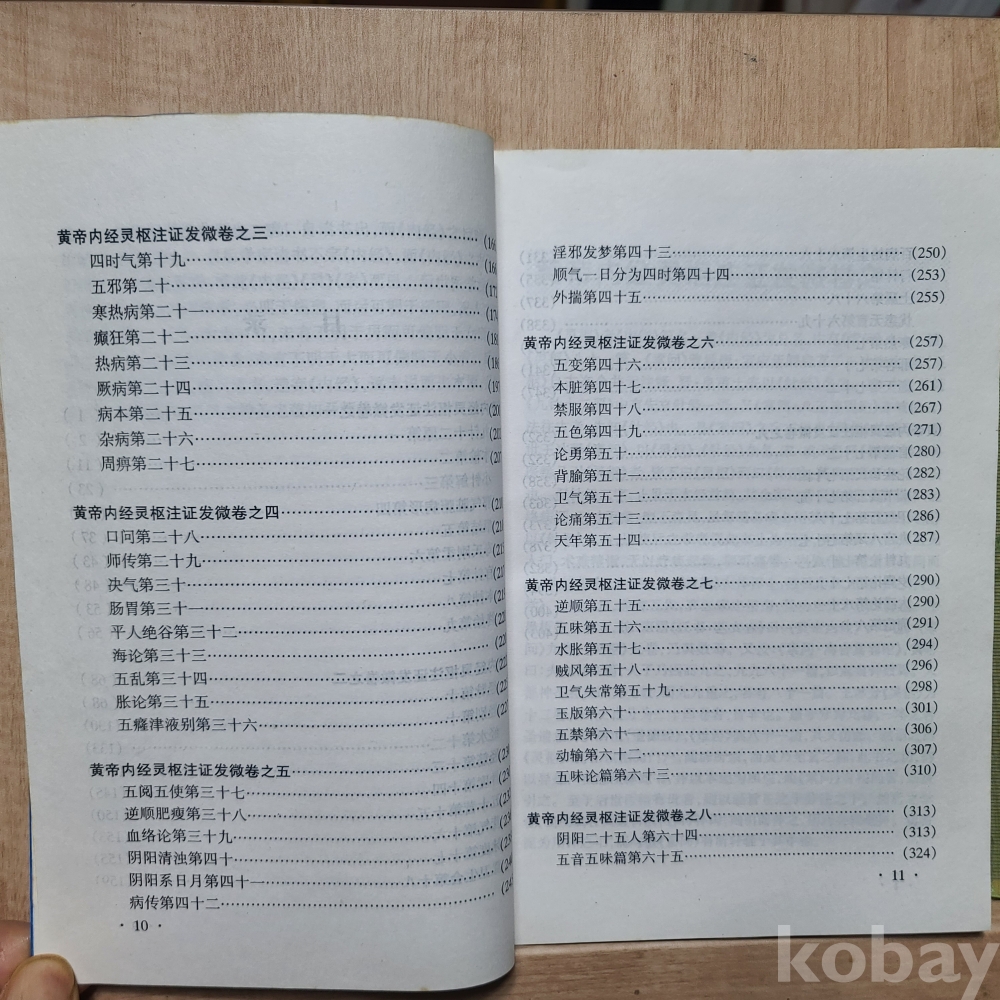 黄帝内经灵枢注证发微卷之三
四时气第十九
五邪第二十
寒热病第二十一
癫狂第二十二
热病第二十三
厥病第二十四
病本第二十五
杂病第二十六
周痹第二十七
黄帝内经灵枢注证发微卷之四
口问第二十八
师传第二十九
决气第三十
肠胃第三十一
平人绝谷第三十二
海论第三十三
五乱第三十四
胀论第三十五
五癃津液别第三十六
黄帝内经灵枢注证发微卷之五
五阅五使第三十七
逆顺肥瘦第三十八
血络论第三十九
阴阳清浊第四十
阴阳系日月第四十一
病传第四十二
· 10 ·
淫邪发梦第四十三……(250)
顺气一日分为四时第四十四……(253)
外揣第四十五……(255)
黄帝内经灵枢注证发微卷之六……(257)
五变第四十六……(257)
本脏第四十七……(261)
禁服第四十八……(267)
五色第四十九……(271)
论勇第五十……(280)
背腧第五十一……(282)
卫气第五十二……(283)
论痛第五十三……(286)
天年第五十四……(287)
黄帝内经灵枢注证发微卷之七……(290)
逆顺第五十五……(290)
五味第五十六……(291)
水胀第五十七……(294)
贼风第五十八……(296)
卫气失常第五十九……(298)
玉版第六十……(301)
五禁第六十一……(306)
动输第六十二……(307)
五味论篇第六十三……(310)
黄帝内经灵枢注证发微卷之八……(313)
阴阳二十五人第六十四……(313)
五音五味篇第六十五……(324)
· 11 ·
kobay